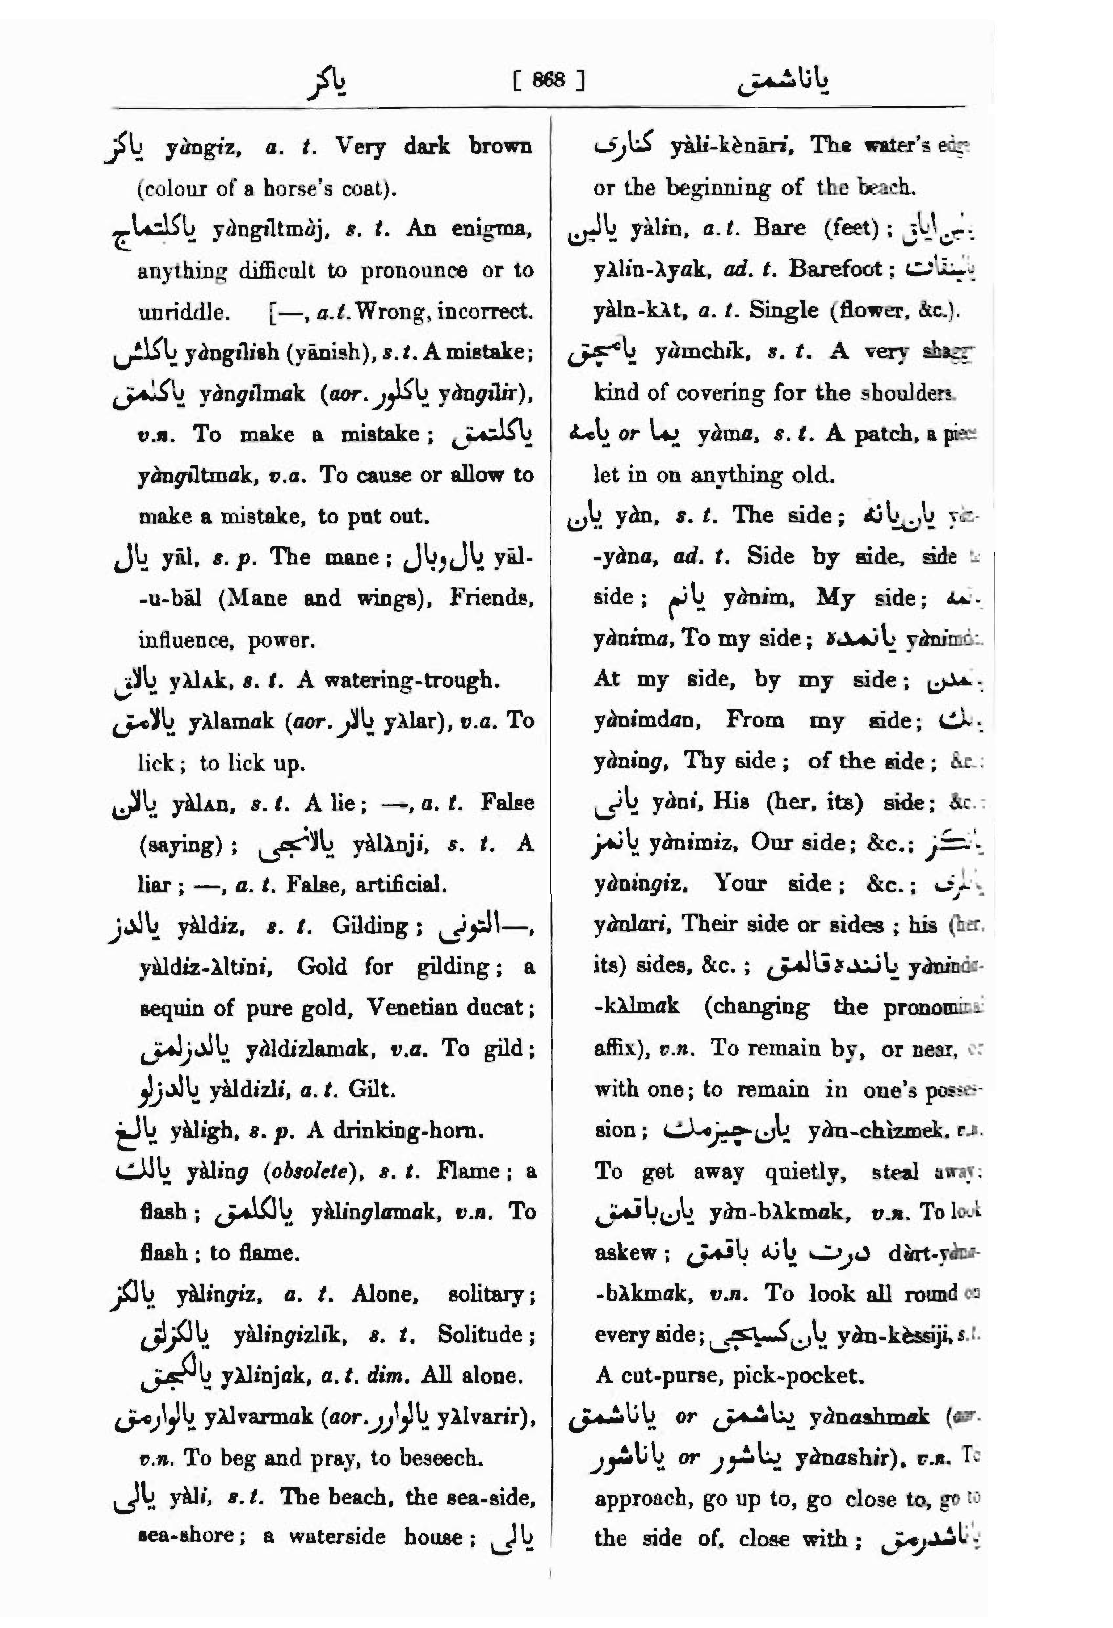 ياكز [ 868 ] ياناشمق
ياكز yàngiz, a. t. Very dark brown
(colour of a horse's coat).
ياكلتماج yàngiltmàj, s. t. An enigma,
anything difficult to pronounce or to
unriddle. [—, a.t. Wrong, incorrect.
ياكلش yàngilish (yānish), s.t. A mistake;
ياكلمق yàngilmak (aor. ياكلور yàngilir),
v.n. To make a mistake; ياكلتمق
yàngiltmak, v.a. To cause or allow to
make a mistake, to put out.
يال yāl, s. p. The mane; يال وبال yāl-
-u-bāl (Mane and wings), Friends,
influence, power.
يالاق yλlᴀk, s. t. A watering-trough.
يالامق yλlamak (aor. يالار yλlar), v.a. To
lick; to lick up.
يالان yàlᴀn, s. t. A lie; —, a. t. False
(saying); يالانجى yàlλnji, s. t. A
liar; —, a. t. False, artificial.
يالدز yàldiz, s. t. Gilding; —التونى,
yàldiz-λltini, Gold for gilding; a
sequin of pure gold, Venetian ducat;
يالدزلمق yàldizlamak, v.a. To gild;
يالدزلو yàldizli, a. t. Gilt.
يالغ yàligh, s. p. A drinking-horn.
يالك yàling (obsolete), s. t. Flame; a
flash; يالكلمق yàlinglamak, v.n. To
flash; to flame.
يالكز yàlingiz, a. t. Alone, solitary;
يالكزلق yàlingizlik, s. t. Solitude;
يالكجق yλlinjak, a. t. dim. All alone.
يالوارمق yλlvarmak (aor. يالوارر yλlvarir),
v.n. To beg and pray, to beseech.
يالى yàli, s. t. The beach, the sea-side,
sea-shore; a waterside house; يالى
كنارى yàli-kènāri, The water's edge
or the beginning of the beach.
يالين yàlin, a. t. Bare (feet);
yλlin-λyak, ad. t. Barefoot;
yàln-kλt, a. t. Single (flower, &c.).
يامچق yàmchik, s. t. A very
kind of covering for the shoulders.
يامه or يما yàma, s. t. A patch, a piece
let in on anything old.
يان yàn, s. t. The side; يان يانه
-yàna, ad. t. Side by side, side
side; يانم yànim, My side;
yànima, To my side; يانمده
At my side, by my side;
yànimdan, From my side;
yàning, Thy side; of the side; &c.;
يانى yàni, His (her, its) side; &c.;
يانمز yànimiz, Our side; &c.;
yàningiz, Your side; &c.;
yànlari, Their side or sides; his (her,
its) sides, &c.; ياننده قالمق yàninda-
-kλlmak (changing the pronominal
affix), v.n. To remain by, or near, or
with one; to remain in one's posses-
sion; يان چيزمك yàn-chìzmek, v.n.
To get away quietly, steal away;
يان باقمق yàn-bλkmak, v.n. To look
askew; درت يانه باقمق dàrt-yàna-
-bλkmak, v.n. To look all round on
every side; يان كسيجى yàn-kèssiji, s.t.
A cut-purse, pick-pocket.
ياناشمق or يناشمق yànashmak (aor.
ياناشور or يناشور yànashir), v.n. To
approach, go up to, go close to, go to
the side of, close with; ياناشدرمق